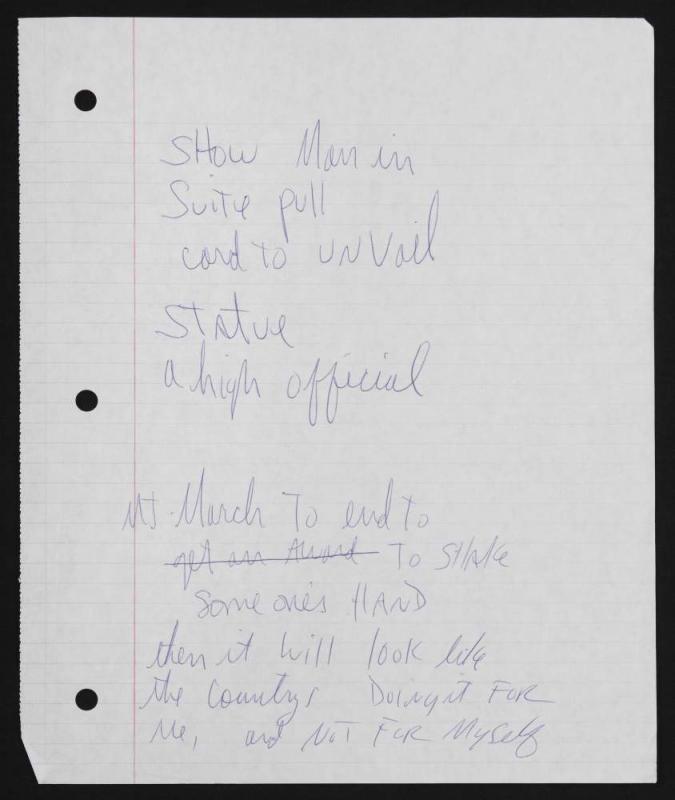 SHow Man in
Suite pull
cord to unVail
Statue
a high official
MJ. March To end to
get an Award To SHAKe
Someones HAND
then it will look like
the Countrys Doing it FOR
Me, and NOT FOR Myself